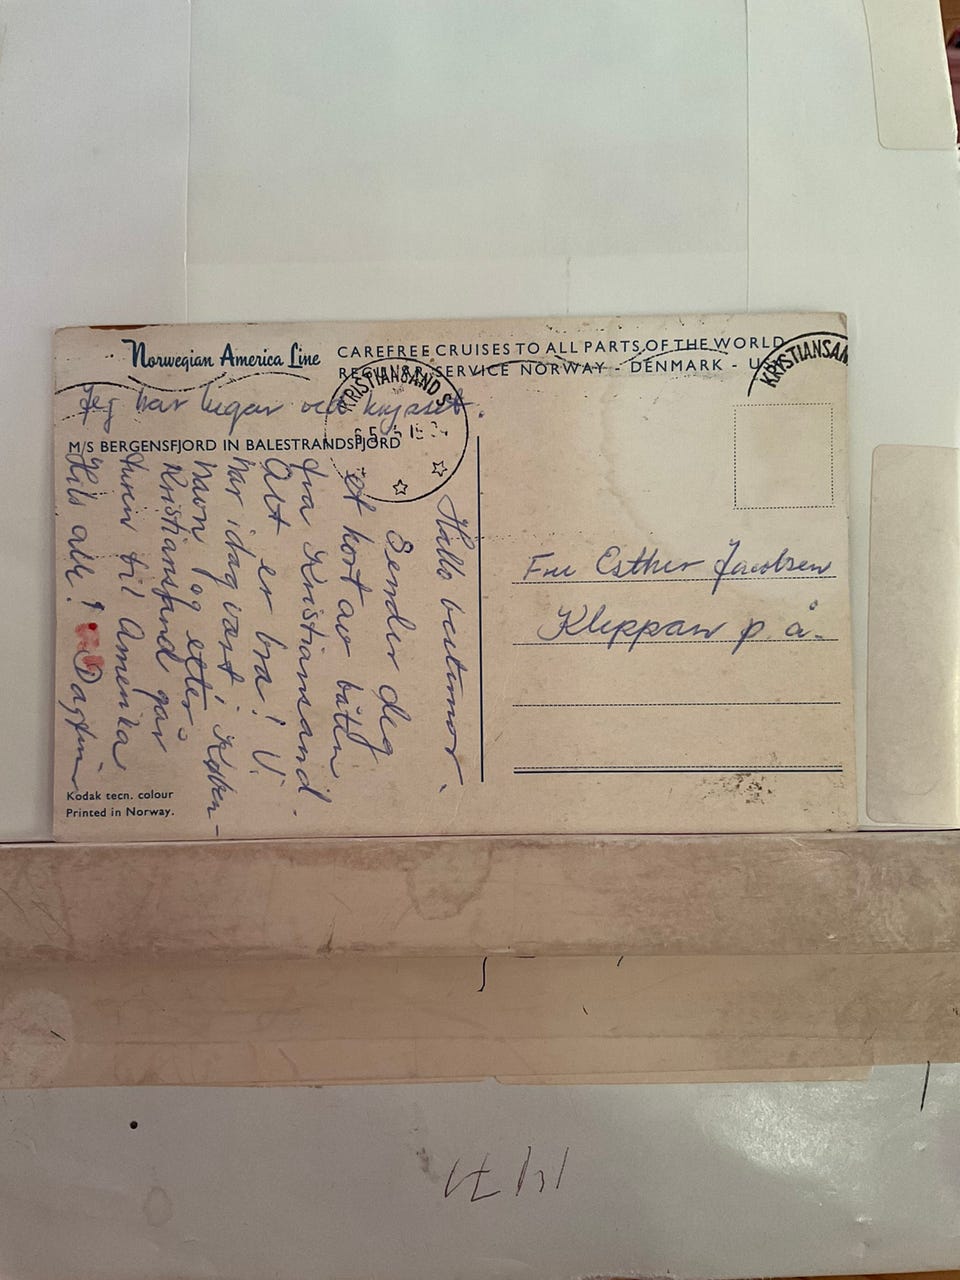 Norwegian America Line
CAREFREE CRUISES TO ALL PARTS OF THE WORLD
REGULAR SERVICE NORWAY - DENMARK - U
KRISTIANSAND S
KRISTIANSAN
Jeg har lugar
M/S BERGENSFJORD IN BALESTRANDSFJORD
Hallo bestemor.
Sender deg
et kort av båten
fra Kristiansand.
Alt er bra! Vi
har idag vært i Køben-
havn og etter
Kristiansand går
turen til Amerika
Hils alle!
Dagfinn
Fru Esther Jacobsen
Kleppan p. å.
Kodak tecn. colour
Printed in Norway.